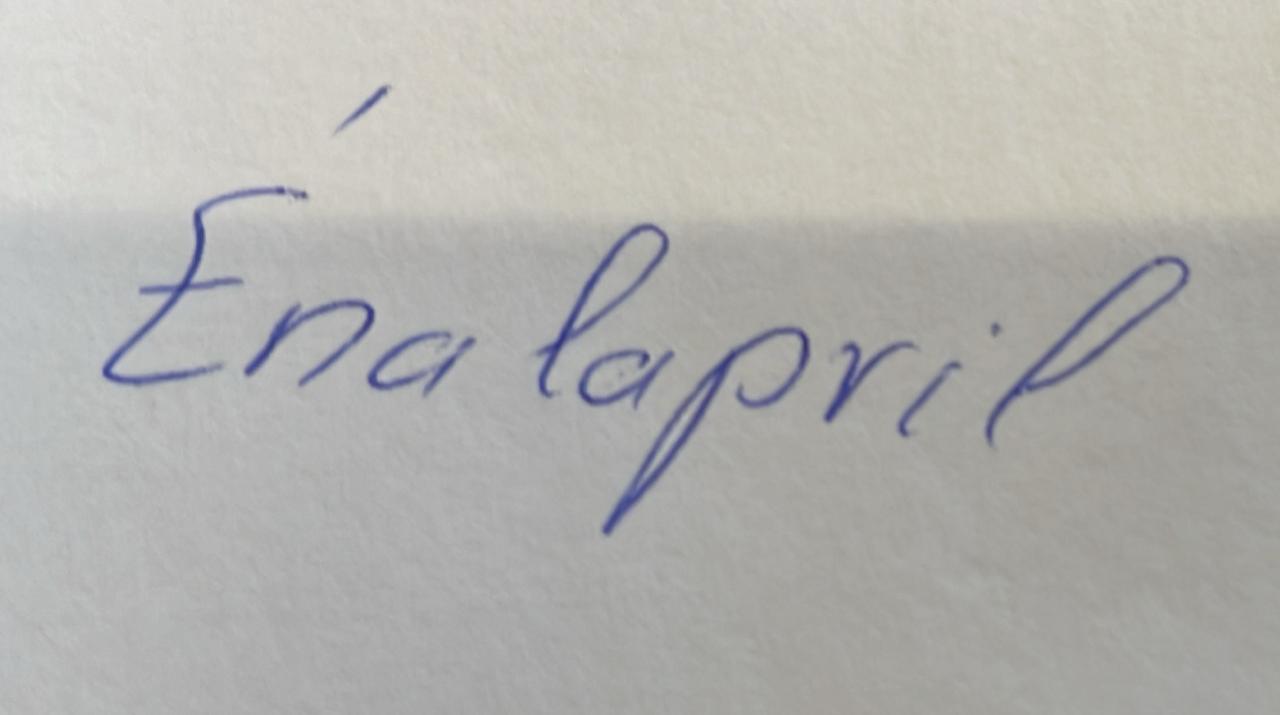 Énalapril